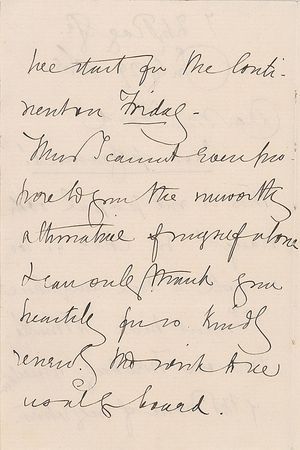 we start for the Conti-
nent on Friday -
Thus I cannot even pro-
pose to you the unworthy
alternative of myself alone
I can only thank you
heartily for so kindly
the wish to see
us on board.